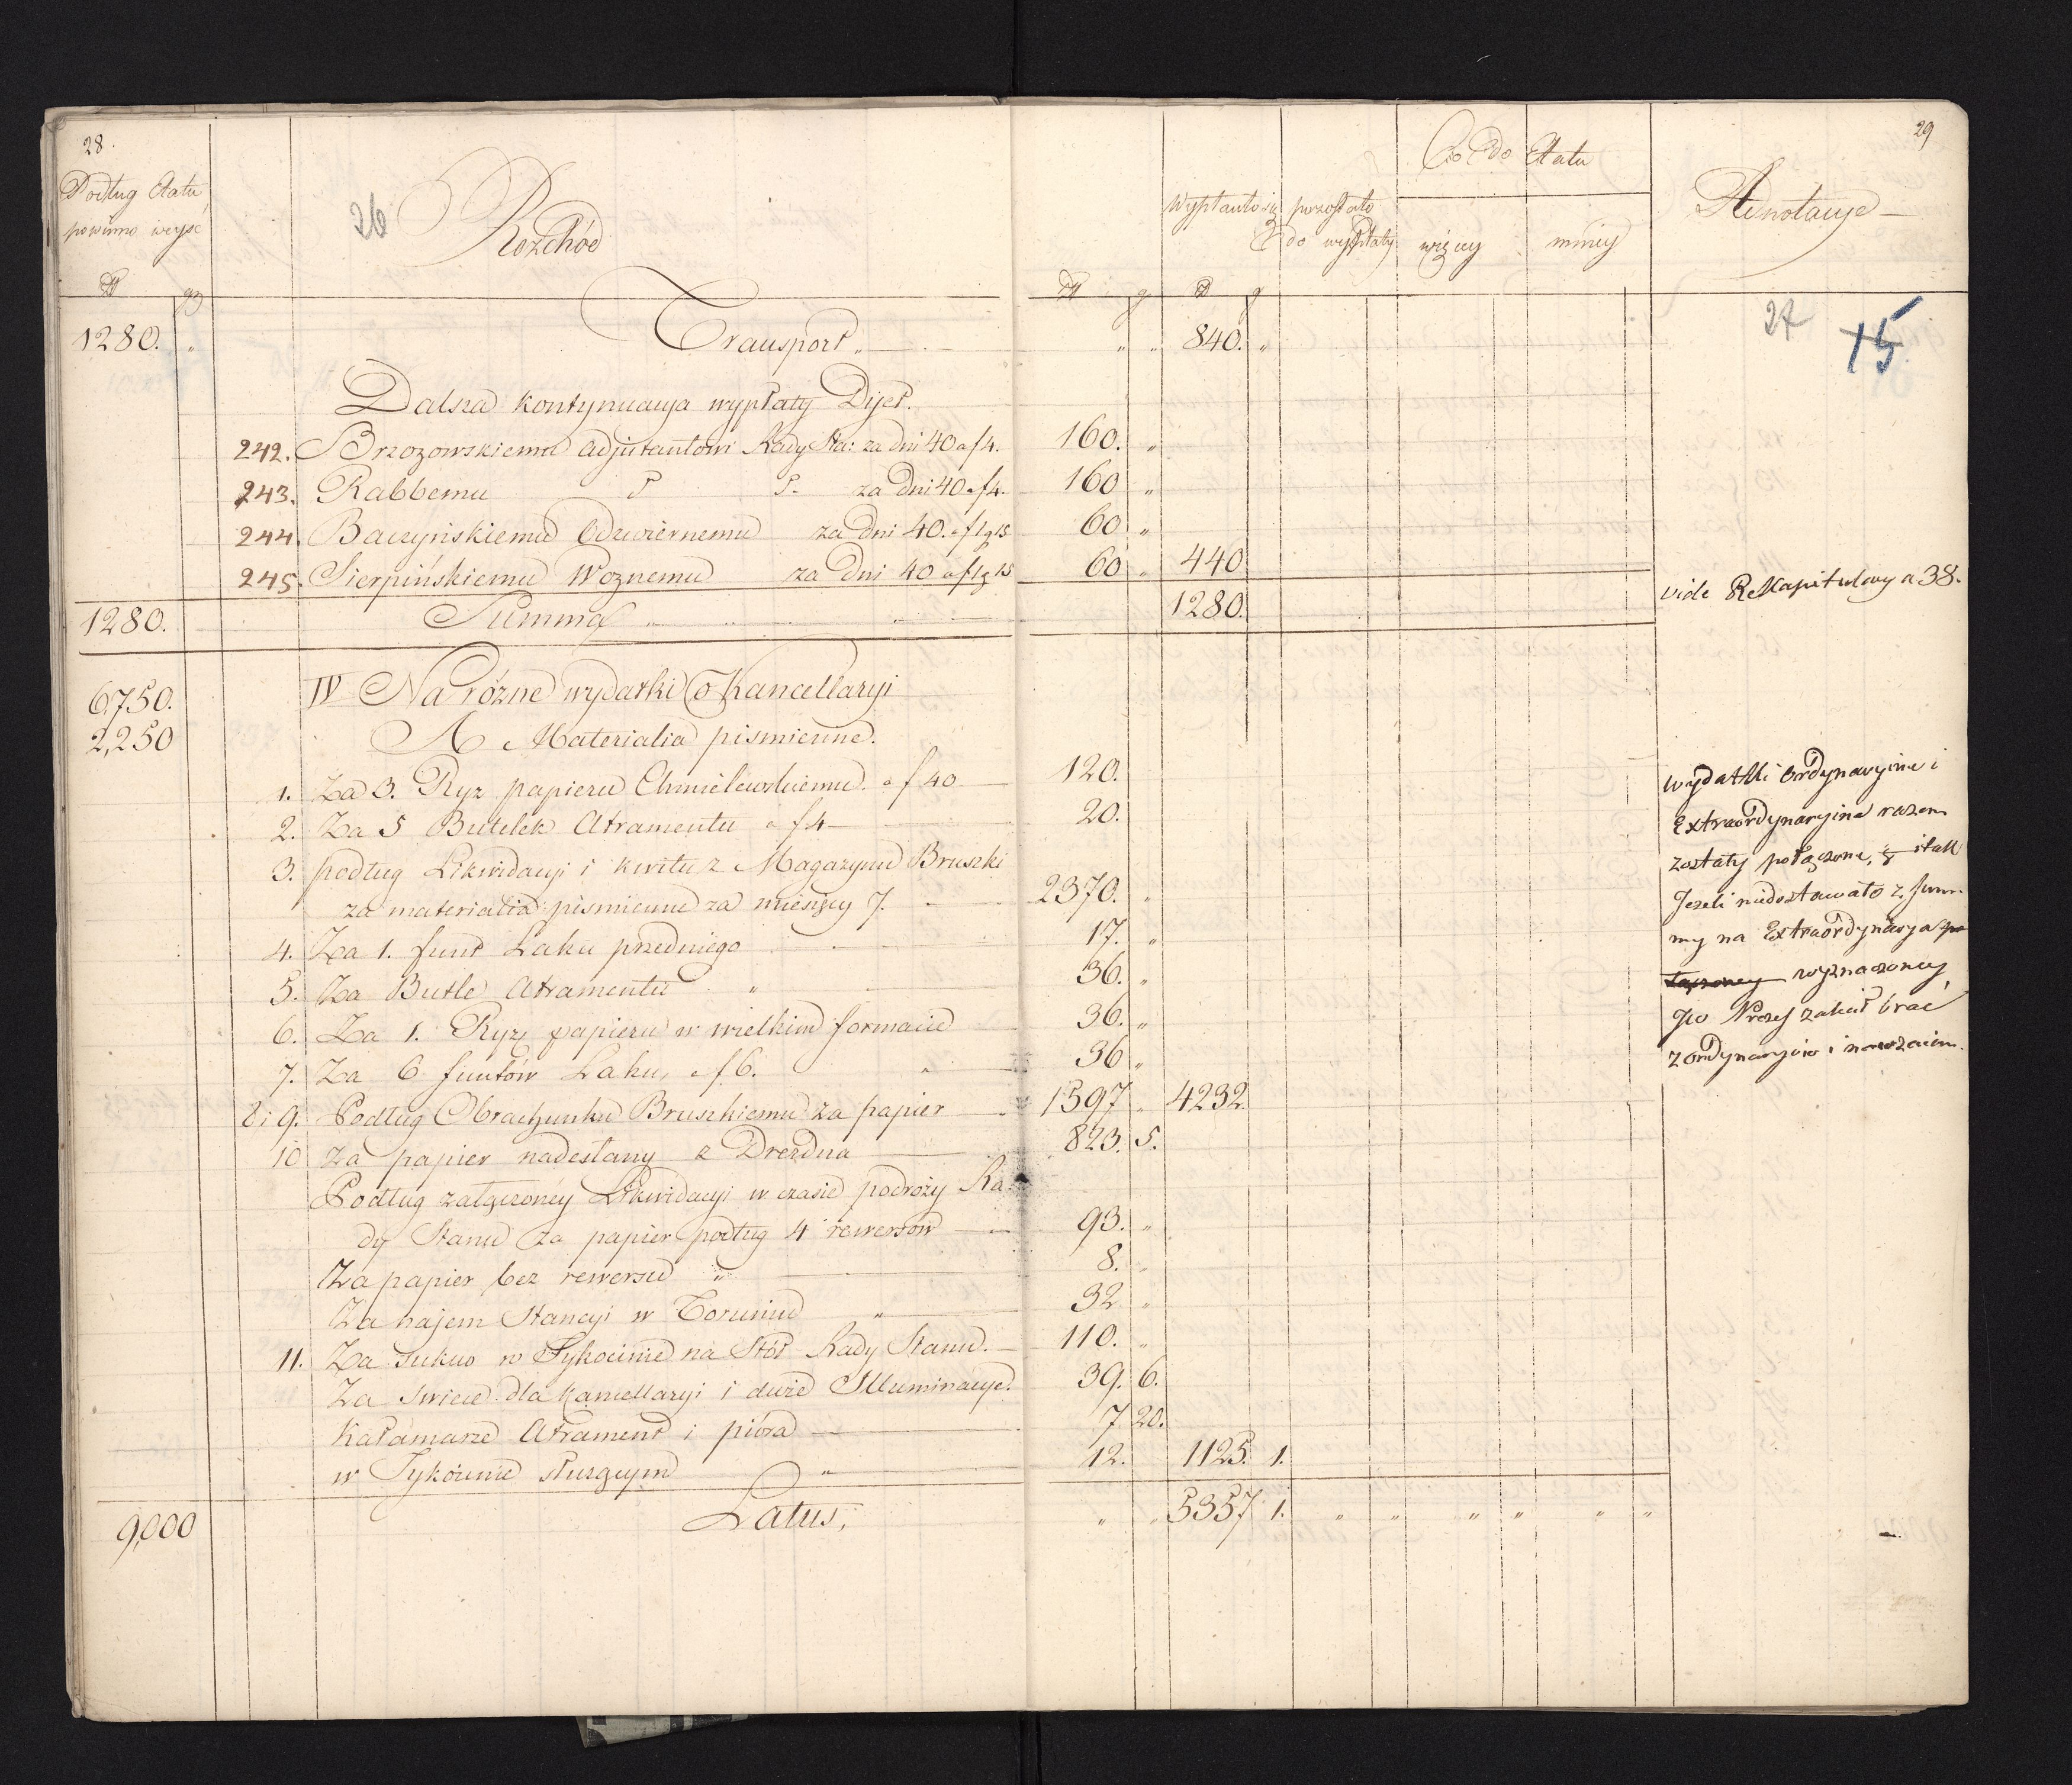 28.
Podług Etatu
powinno wyyść
26
Rozchód
1280. „ Transport „
Dalsza kontynuacya wypłaty Dyet.
242. Brzozowskiemu Adjutantowi Rady Sta: za dni 40 a f 4.
243. Rabbemu za Dni 40 a f 4.
244. Baczyńskiemu Odzwiernemu za Dni 40. a f 1 g 15
245. Sierpińskiemu Woznemu za Dni 40 a f 1 g 15
1280. Summa
6750. IV Na rózne wydatki Kancellaryi
2,250 A Materialia pismienne.
1. Za 3. Ryz papieru Chmielewskiemu. a f 40
2. Za 5 Butelek Atramentu a f 4
3. podług Likwidacyi i kwitu z Magazynu Bruszki
za materialia pismienne za miesięcy 7.
4. Za 1. funt Laku przedniego
5. Za Butle Atramentu „
6. Za 1. Ryzę papieru w wielkim formacie
7. Za 6 funtów Laku, a f 6.
8 i 9. Podług Obrachunku Bruszkiemu za papier
10 Za papier nadesłany z Drezdna
Podług załączoney Likwidacyi w czasie podroży Ra
dy Stanu za papier podług 4 rewersow
Za papier bez rewersu „
Za najem Stancyi w Toruniu „
11. Za sukno w Tykocinie na Stół Rady Stanu.
Za swiece dla Kancellaryi i dwie Illuminacye.
Kałamarze Atrament i pióra
w Tykocinie służącym „
9,000 Latus,
29
Co do Etatu
Wypłacono się pozostało
do wypłaty więcey mniey
Adnotacye
27 15
„ „ 840. „
160. „
160 „
60 „
60 „ 440
1280.
vide Rekapitulacyą a 38.
120.
20.
2370. „
17. „
36. „
36. „
36 „
1597 „ 4232
823. 5.
93. „
8. „
32 „
110. „
39. 6.
7 20.
12. 1125. 1.
„ „ 5357 1. „ „ „ „ „ „
wydatki Ordynaryine i
Extraordynaryine razem
zostały połączone, i tak
Jeżeli niedostawało z sum
my na Extraordynarya
wyznaczoney
JW Prezes zakał brać
z ordynaryiów i nawzaiem.